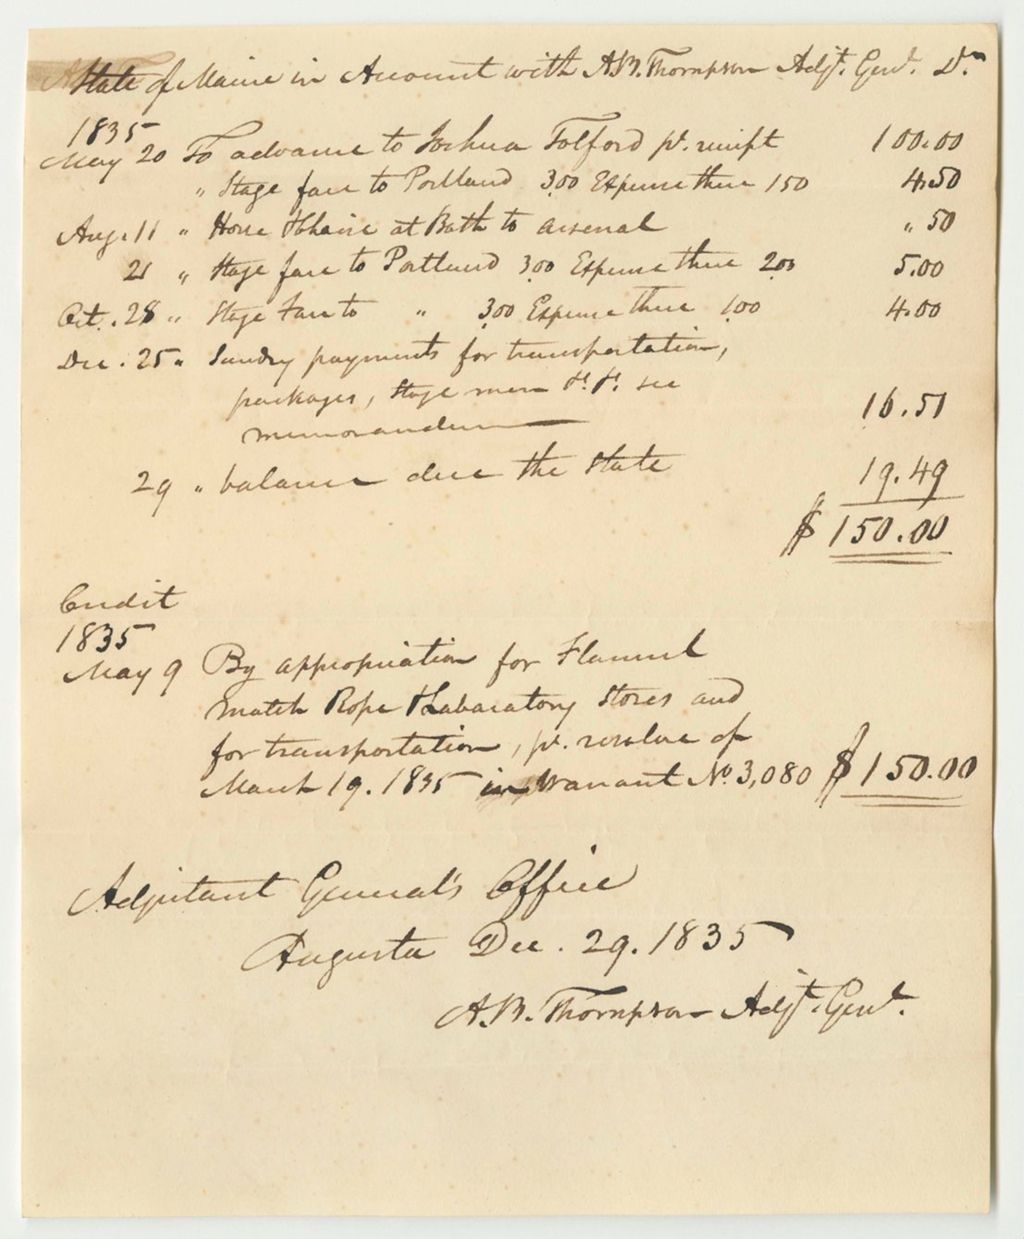 State of Maine in Account with A.B. Thompson Adjt. Genl. Dr
1835
May 20 To advance to Joshua Tolford pr. receipt 100.00
" Stage fare to Portland 3.00 Expense there 150 4.50
Aug. 11 " Horse & Chaise at Bath to arsenal " 50
21 " Stage fare to Portland 3.00 Expense there 2.00 5.00
Oct. 28 " Stage Fare to " 3.00 Expense there 1.00 4.00
Dec. 25 " Sundry payments for transportation,
packages, Stage men &c. &c. see
memorandum 16.51
29 " balance due the State 19.49
$150.00
Credit
1835
May 9 By appropriation for Flannel
Match Rope & Labaratory Stores and
for transportation, pr. resolve of
March 19. 1835 in Warrant No. 3,080 $150.00
Adjutant General's Office
Augusta Dec. 29. 1835
A.B. Thompson Adjt. Genl.